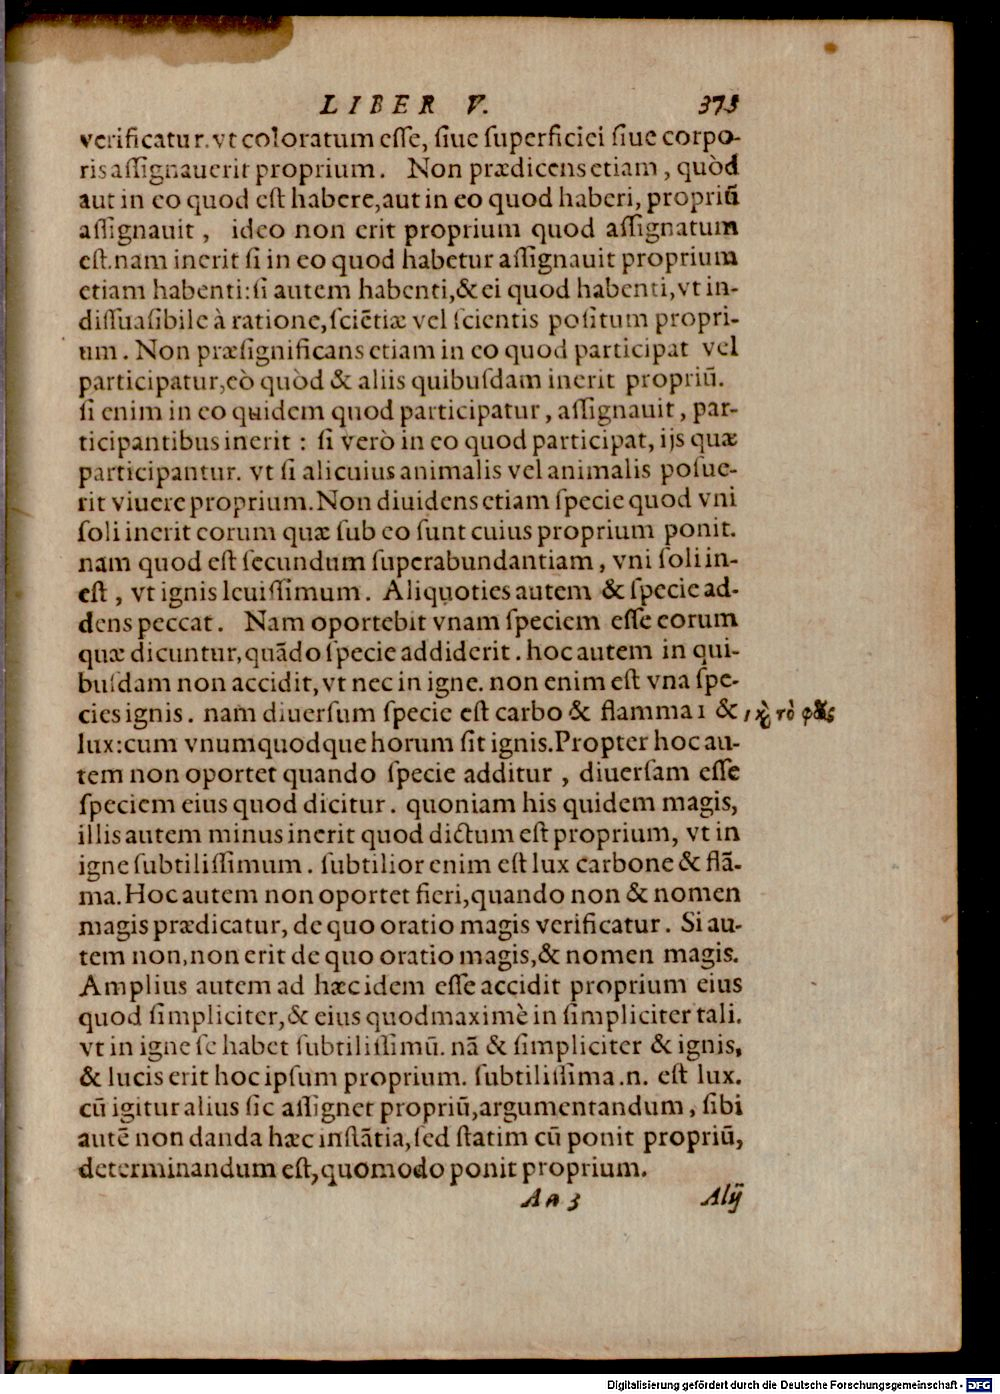 LIBER V. 375
verificatur. vt coloratum esse, siue superficiei siue corpo-
ris assignauerit proprium. Non prædicens etiam, quòd
aut in eo quod est habere, aut in eo quod haberi, propriũ
assignauit, ideo non erit proprium quod assignatum
est. nam inerit si in eo quod habetur assignauit proprium
etiam habenti: si autem habenti, & ei quod habenti, vt in-
dissuasibile à ratione, sciẽtiæ vel scientis positum propri-
um. Non præsignificans etiam in eo quod participat vel
participatur, eò quòd & aliis quibusdam inerit propriũ.
si enim in eo quidem quod participatur, assignauit, par-
ticipantibus inerit: si verò in eo quod participat, ijs quæ
participantur. vt si alicuius animalis vel animalis posue-
rit viuere proprium. Non diuidens etiam specie quod vni
soli inerit eorum quæ sub eo sunt cuius proprium ponit.
nam quod est secundum superabundantiam, vni soli in-
est, vt ignis leuissimum. Aliquoties autem & specie ad-
dens peccat. Nam oportebit vnam speciem esse eorum
quæ dicuntur, quãdo specie addiderit. hoc autem in qui-
busdam non accidit, vt nec in igne. non enim est vna spe-
cies ignis. nam diuersum specie est carbo & flamma 1 & 1 κỳ τὸ φῶς
lux: cum vnumquodque horum sit ignis. Propter hoc au-
tem non oportet quando specie additur, diuersam esse
speciem eius quod dicitur. quoniam his quidem magis,
illis autem minus inerit quod dictum est proprium, vt in
igne subtilissimum. subtilior enim est lux carbone & flã-
ma. Hoc autem non oportet fieri, quando non & nomen
magis prædicatur, de quo oratio magis verificatur. Si au-
tem non, non erit de quo oratio magis, & nomen magis.
Amplius autem ad hæc idem esse accidit proprium eius
quod simpliciter, & eius quod maximè in simpliciter tali.
vt in igne se habet subtilissimũ. nã & simpliciter & ignis,
& lucis erit hoc ipsum proprium. subtilissima .n. est lux.
cũ igitur alius sic assignet propriũ, argumentandum, sibi
autẽ non danda hæc instãtia, sed statim cũ ponit propriũ,
determinandum est, quomodo ponit proprium.
Aa 3 Alij
Digitalisierung gefördert durch die Deutsche Forschungsgemeinschaft - DFG